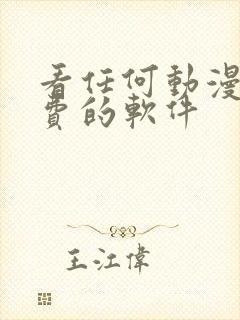 看任何動漫
費的軟件
王江偉